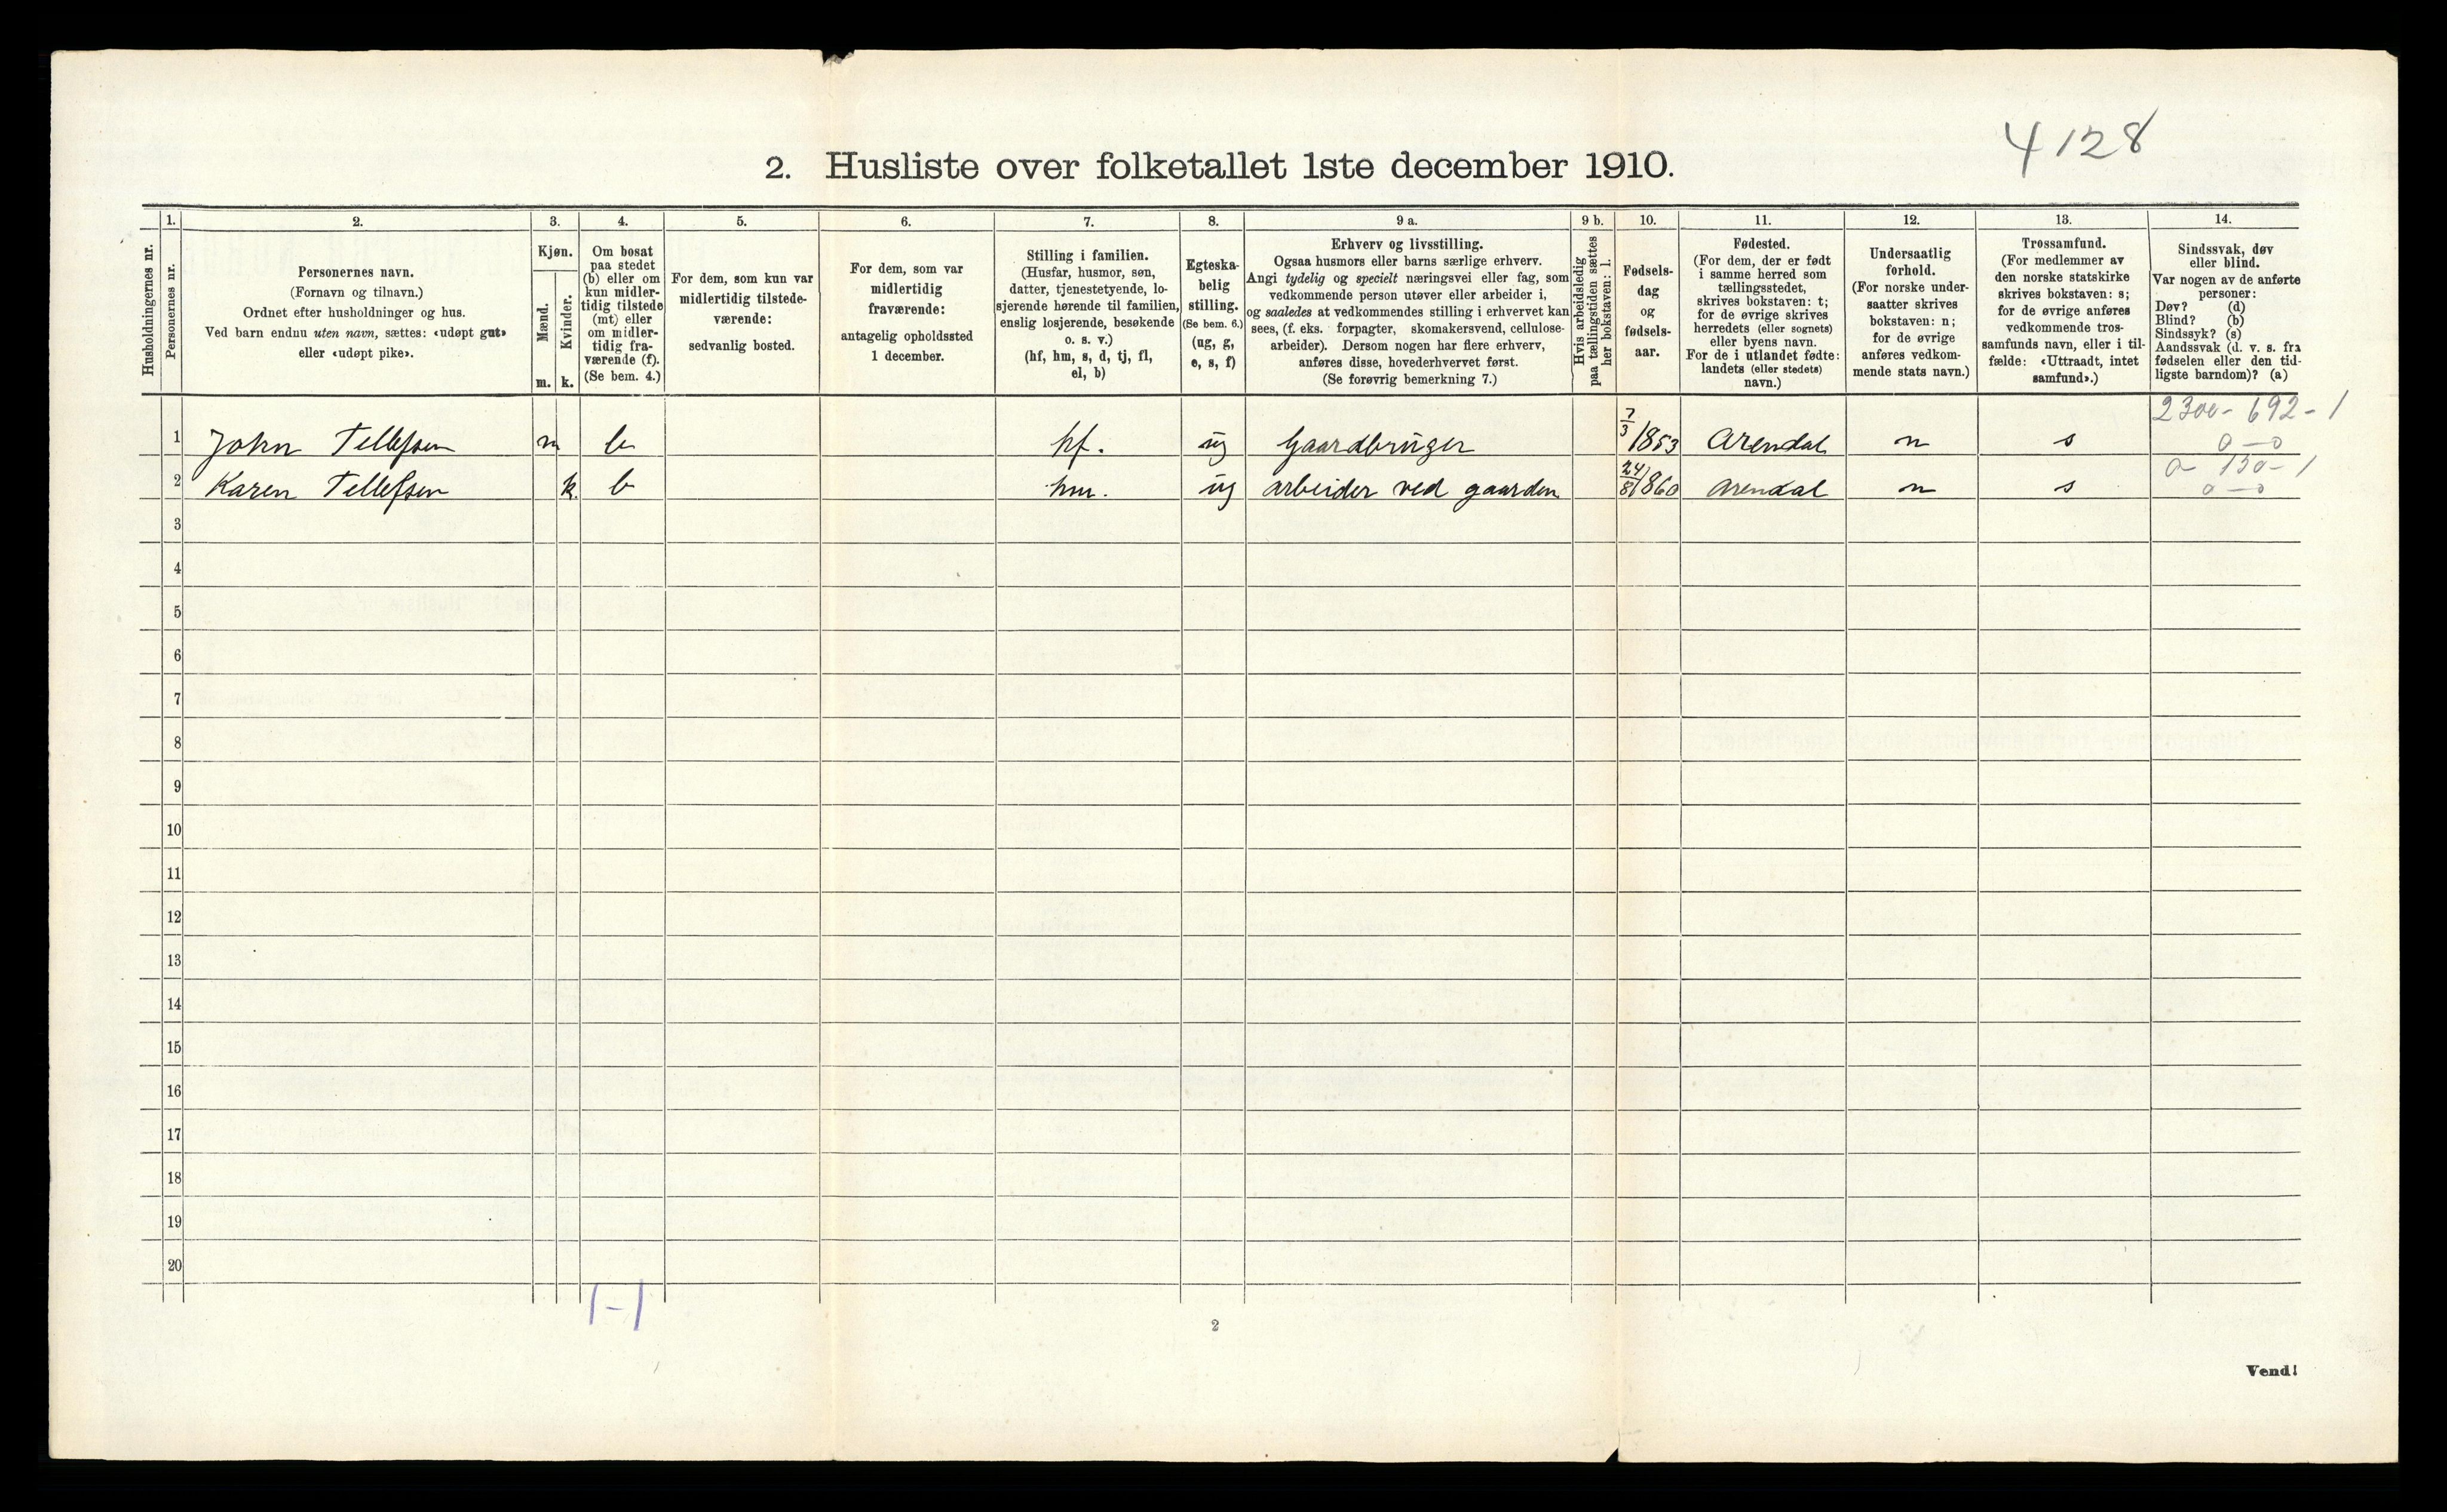 4128
2. Husliste over folketallet 1ste december 1910.
Husholdningernes nr.
1.
Personernes nr.
2.
Personernes navn.
(Fornavn og tilnavn.)
Ordnet efter husholdninger og hus.
Ved barn endnu uten navn, sættes: «udøpt gut»
eller «udøpt pike».
3.
Kjøn.
Mænd.
m.
Kvinder.
k.
4.
Om bosat
paa stedet
(b) eller om
kun midler-
tidig tilstede
(mt) eller
om midler-
tidig fra-
værende (f).
(Se bem. 4.)
5.
For dem, som kun var
midlertidig tilstede-
værende:
sedvanlig bosted.
6.
For dem, som var
midlertidig
fraværende:
antagelig opholdssted
1 december.
7.
Stilling i familien.
(Husfar, husmor, søn,
datter, tjenestetyende, lo-
sjerende hørende til familien,
enslig losjerende, besøkende
o. s. v.)
(hf, hm, s, d, tj, fl,
el, b)
8.
Egteska-
belig
stilling.
(Se bem. 6.)
(ug, g,
e, s, f)
9 a.
Erhverv og livsstilling.
Ogsaa husmors eller barns særlige erhverv.
Angi tydelig og specielt næringsvei eller fag, som
vedkommende person utøver eller arbeider i,
og saaledes at vedkommendes stilling i erhvervet kan
sees, (f. eks. forpagter, skomakersvend, cellulose-
arbeider). Dersom nogen har flere erhverv,
anføres disse, hovederhvervet først.
(Se forøvrig bemerkning 7.)
9 b.
Hvis arbeidsledig
paa tællingstiden sættes
her bokstaven: l.
10.
Fødsels-
dag
og
fødsels-
aar.
11.
Fødested.
(For dem, der er født
i samme herred som
tællingsstedet,
skrives bokstaven: t;
for de øvrige skrives
herredets (eller sognets)
eller byens navn.
For de i utlandet fødte:
landets (eller stedets)
navn.)
12.
Undersaatlig
forhold.
(For norske under-
saatter skrives
bokstaven: n;
for de øvrige
anføres vedkom-
mende stats navn.)
13.
Trossamfund.
(For medlemmer av
den norske statskirke
skrives bokstaven: s;
for de øvrige anføres
vedkommende tros-
samfunds navn, eller i til-
fælde: «Uttraadt, intet
samfund».)
14.
Sindssvak, døv
eller blind.
Var nogen av de anførte
personer:
Døv? (d)
Blind? (b)
Sindssyk? (s)
Aandssvak (d. v. s. fra
fødselen eller den tid-
ligste barndom)? (a)
2300- 692-1
1 John Tellefsen m b hf. ug Gaardbruger 7/3 1853 Arendal n s 0-0
0 150-1
2 Karen Tellefsen k. b hm. ug arbeider ved gaarden 24/8 1860 Arendal n s 0-0
3
4
5
6
7
8
9
10
11
12
13
14
15
16
17
18
19
20
1-1
2
Vend!